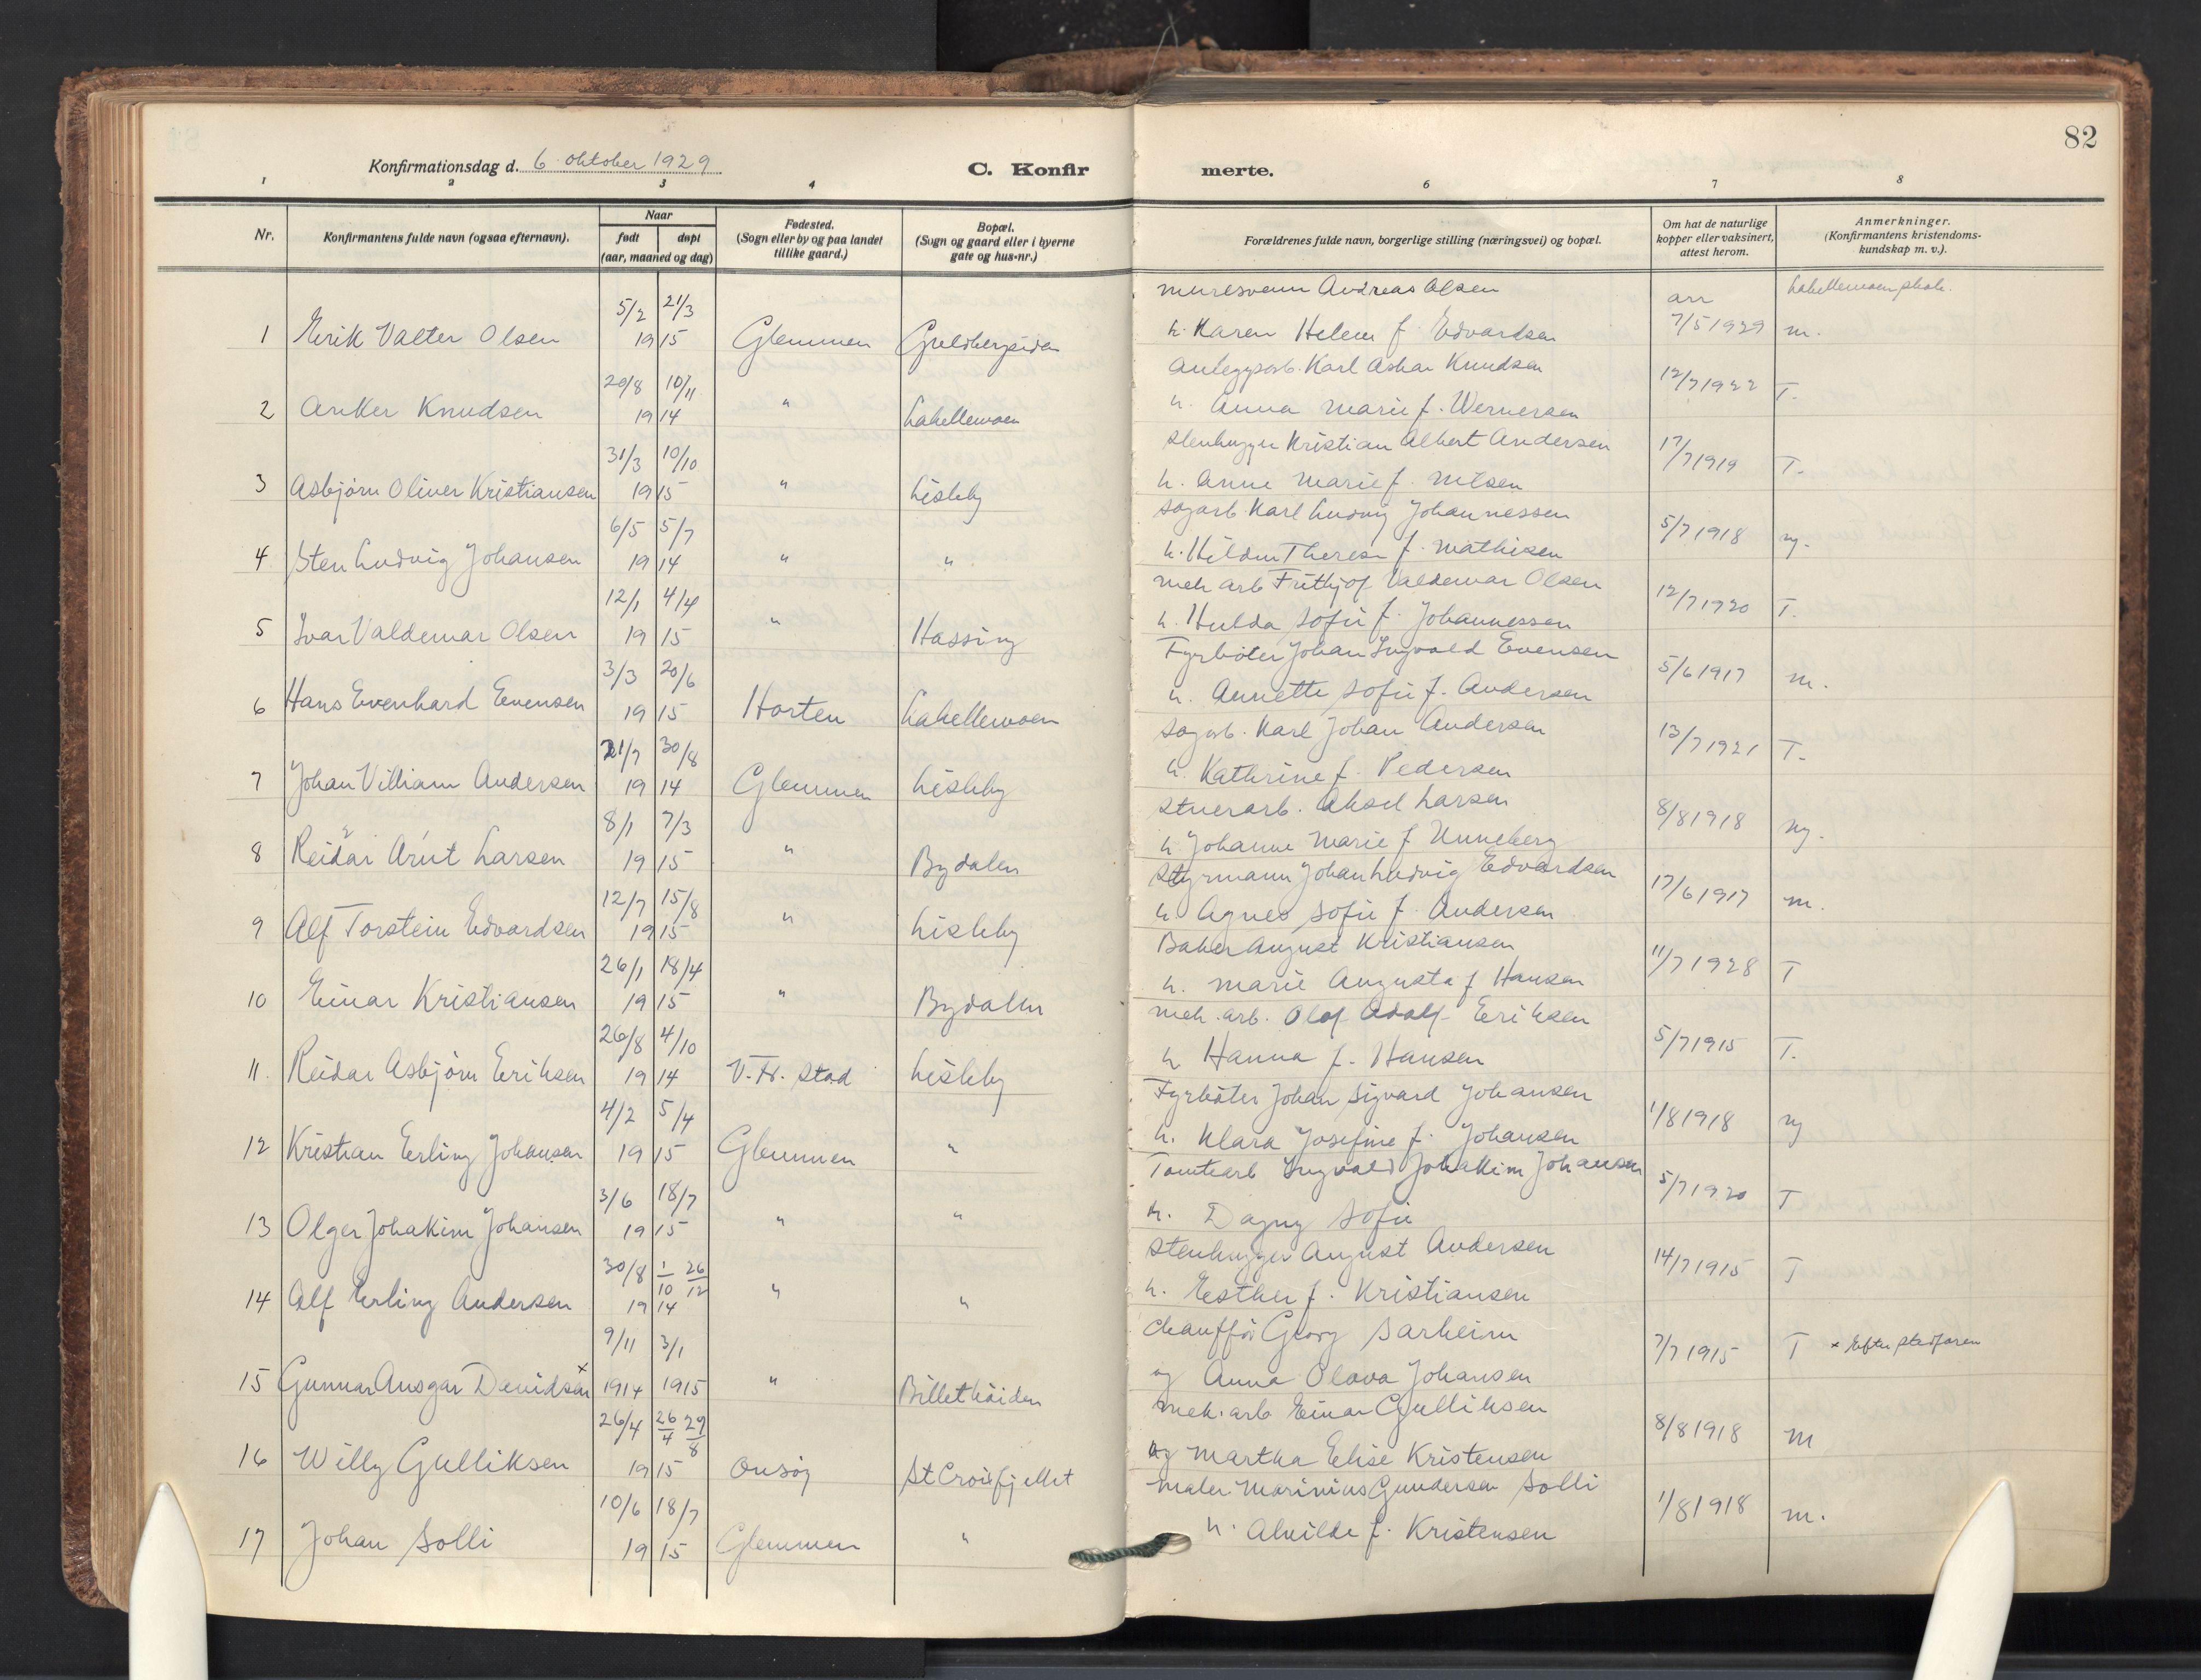 82
Konfirmationsdag d. 6. oktober 1929
C. Konfirmerte.
1 2 3 4 6 7 8
Nr.
Konfirmantens fulde navn (ogsaa efternavn).
Naar
født døpt
(aar, maaned og dag)
Fødested.
(Sogn eller by og paa landet
tillike gaard.)
Bopæl.
(Sogn og gaard eller i byerne
gate og hus-nr.)
Forældrenes fulde navn, borgerlige stilling (næringsvei) og bopæl.
Om hat de naturlige
kopper eller vaksinert,
attest herom.
Anmerkninger.
(Konfirmantens kristendoms-
kundskap m. v.).
5/2 21/3 muresvenn Andreas Olsen arr
1 Erik Valter Olsen 19 15 Glemmen Guldbergsiden h. Karen Helene f. Edvardsen 7/5 1929 m.
20/8 10/11 anleggsarb. Karl Oskar Knudsen 12/7 1922 T.
2 Anker Knudsen 19 14 " Labellemoen h. Anna Marie f. Wernersen
31/3 10/10 Stenhugger Kristian Albert Andersen 17/7 1919 T.
3 Asbjørn Oliver Kristiansen 19 15 " Lisleby h. Anne Marie f. Nilsen
6/5 5/7 Sagarb. Karl Ludvig Johannessen 5/7 1918 ng.
4 Sten Ludvig Johansen 19 14 " " h. Hilda Therese f. Mathisen
12/1 4/4 mek arb Frithjof Valdemar Olsen 12/7 1920 T.
5 Ivar Valdemar Olsen 19 15 " Hassing h. Hulda Sofie f. Johannessen
3/3 20/6 Fyrbøter Johan Ingvald Evensen 5/6 1917 m.
6 Hans Evenhard Evensen 19 15 Horten Labellemoen h. Annette Sofie f. Andersen
21/7 30/8 Sagarb. Karl Johan Andersen 13/7 1921 T.
7 Johan Villiam Andersen 19 14 Glemmen Lisleby h. Kathrine f. Pedersen
8/1 7/3 Stuerarb. Aksel Larsen 8/8 1918 ng.
8 Reidar Arnt Larsen 19 15 " Bydalen h. Johanne Marie f. Unneberg
12/7 15/8 Styrmann Johan Ludvig Edvardsen 17/6 1917 m.
9 Alf Torstein Edvardsen 19 15 " Lisleby h. Agnes Sofie f. Andersen
26/1 18/4 Baker August Kristiansen 11/7 1928 T
10 Einar Kristiansen 19 15 " Bydalen h. Marie Augusta f. Hansen
26/8 4/10 mek. arb. Olaf Adolf Eriksen 5/7 1915 T.
11. Reidar Asbjørn Eriksen 19 14 V. Fr. stad Lisleby h Hanna f. Hansen
4/2 5/4 Fyrbøter Johan Sigvard Johansen 1/8 1918 ng
12 Kristian Erling Johansen 19 15 Glemmen " h. Klara Josefine f. Johansen
3/6 18/7 Tomtearb Ingvald Johakim Johansen 5/7 1920 T
13 Olger Johakim Johansen 19 15 " " h. Dagny Sofie
30/8 1/10 26/12 Stenhugger August Andersen 14/7 1915 T
14 Alf Erling Andersen 19 14 " " h. Esther f. Kristiansen
9/11 3/1 Chauffør Georg Sarheim 7/7 1915 T × Efter stedfaren
15 Gunnar Ansgar Davidsen × 1914 1915 " Billethøiden og Anna Olava Johansen
26/4 26/4 29/8 mek. arb Einar Gulliksen 8/8 1918 m
16 Willy Gulliksen 19 15 Onsøy St Croixfjellet og Martha Elise Kristensen
10/6 18/7 maler Marinius Gundersen Solli 1/8 1918 m.
17 Johan Solli 19 15 Glemmen " h. Alvilde f. Kristensen